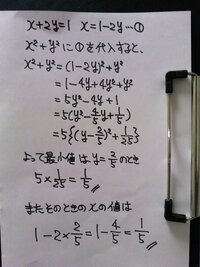 x+2y=1　x=1-2y…①
x²+y²に①を代入すると、
x²+y²=(1-2y)²+y²
=1-4y+4y²+y²
=5y²-4y+1
=5(y²-4/5y+1/5)
=5{(y-2/5)²+1/25}
よって最小値はy=2/5のとき
5×1/25=1/5
またそのときのxの値は
1-2×2/5=1-4/5=1/5